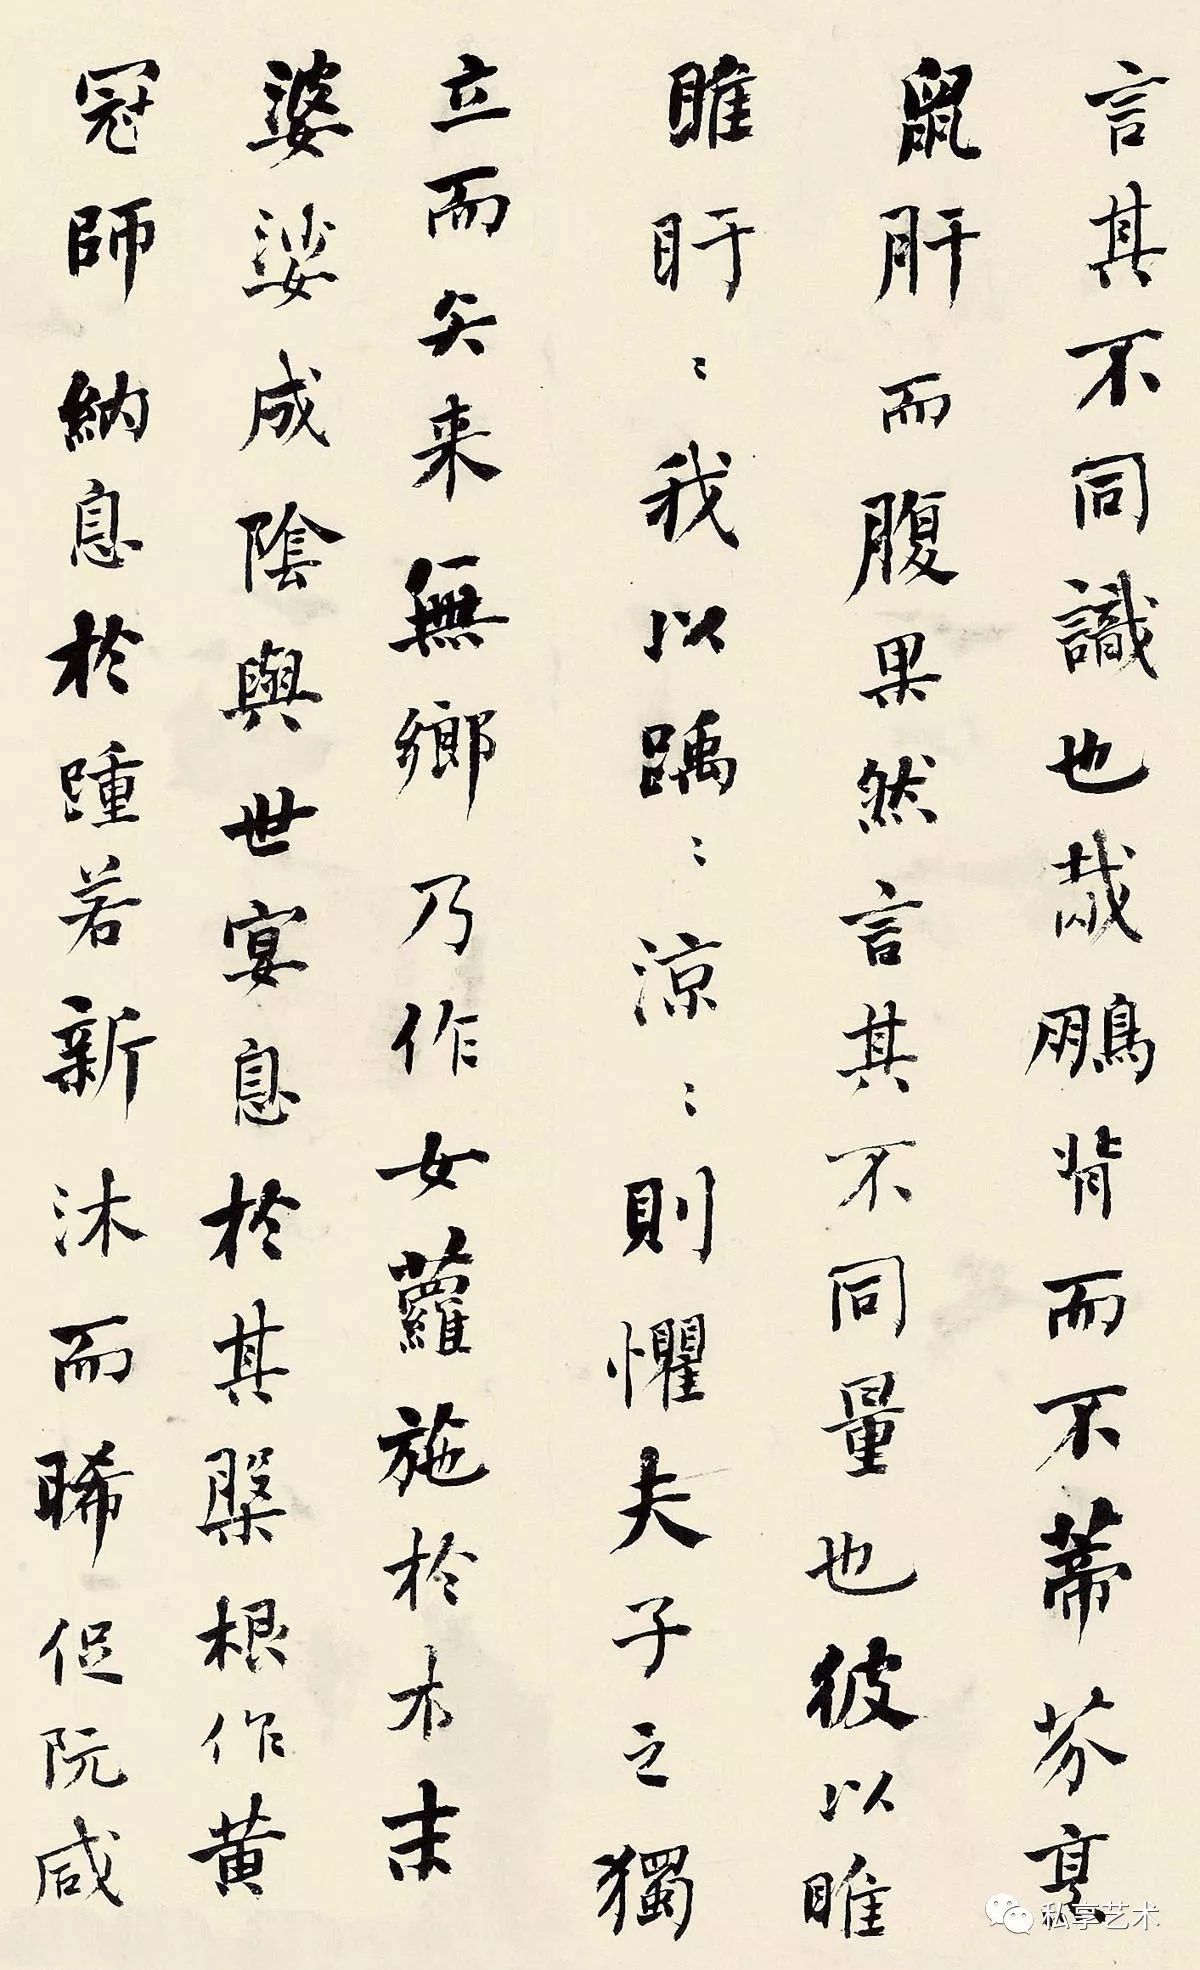 言其不同識也哉鵬背而不蒂芥烹
鼠肝而腹果然言其不同量也彼以睢
睢盱〻我以踽〻涼〻則懼夫子之獨
立而矢来無鄉乃作女蘿施於木末
婆娑成陰與世宴息於其槃根作黄
冠師納息於踵若新沐而晞促阮咸
私享艺术